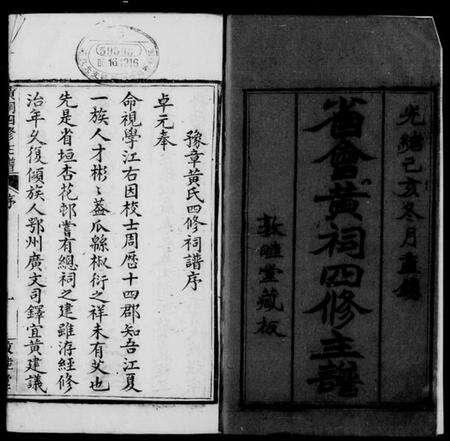 光緒己亥冬月重鐫
省會黃祠四修主譜
敦睦堂藏板
豫章黃氏四修祠譜序
卓元奉
命視學江右因校士周歷十四郡知吾江夏
一族人才彬彬葢瓜緜椒衍之祥未有艾也
先是省垣杏花邨嘗有總祠之建雖洊經修
治年久復傾族人鄂州廣文司鐸宜黃建議
序